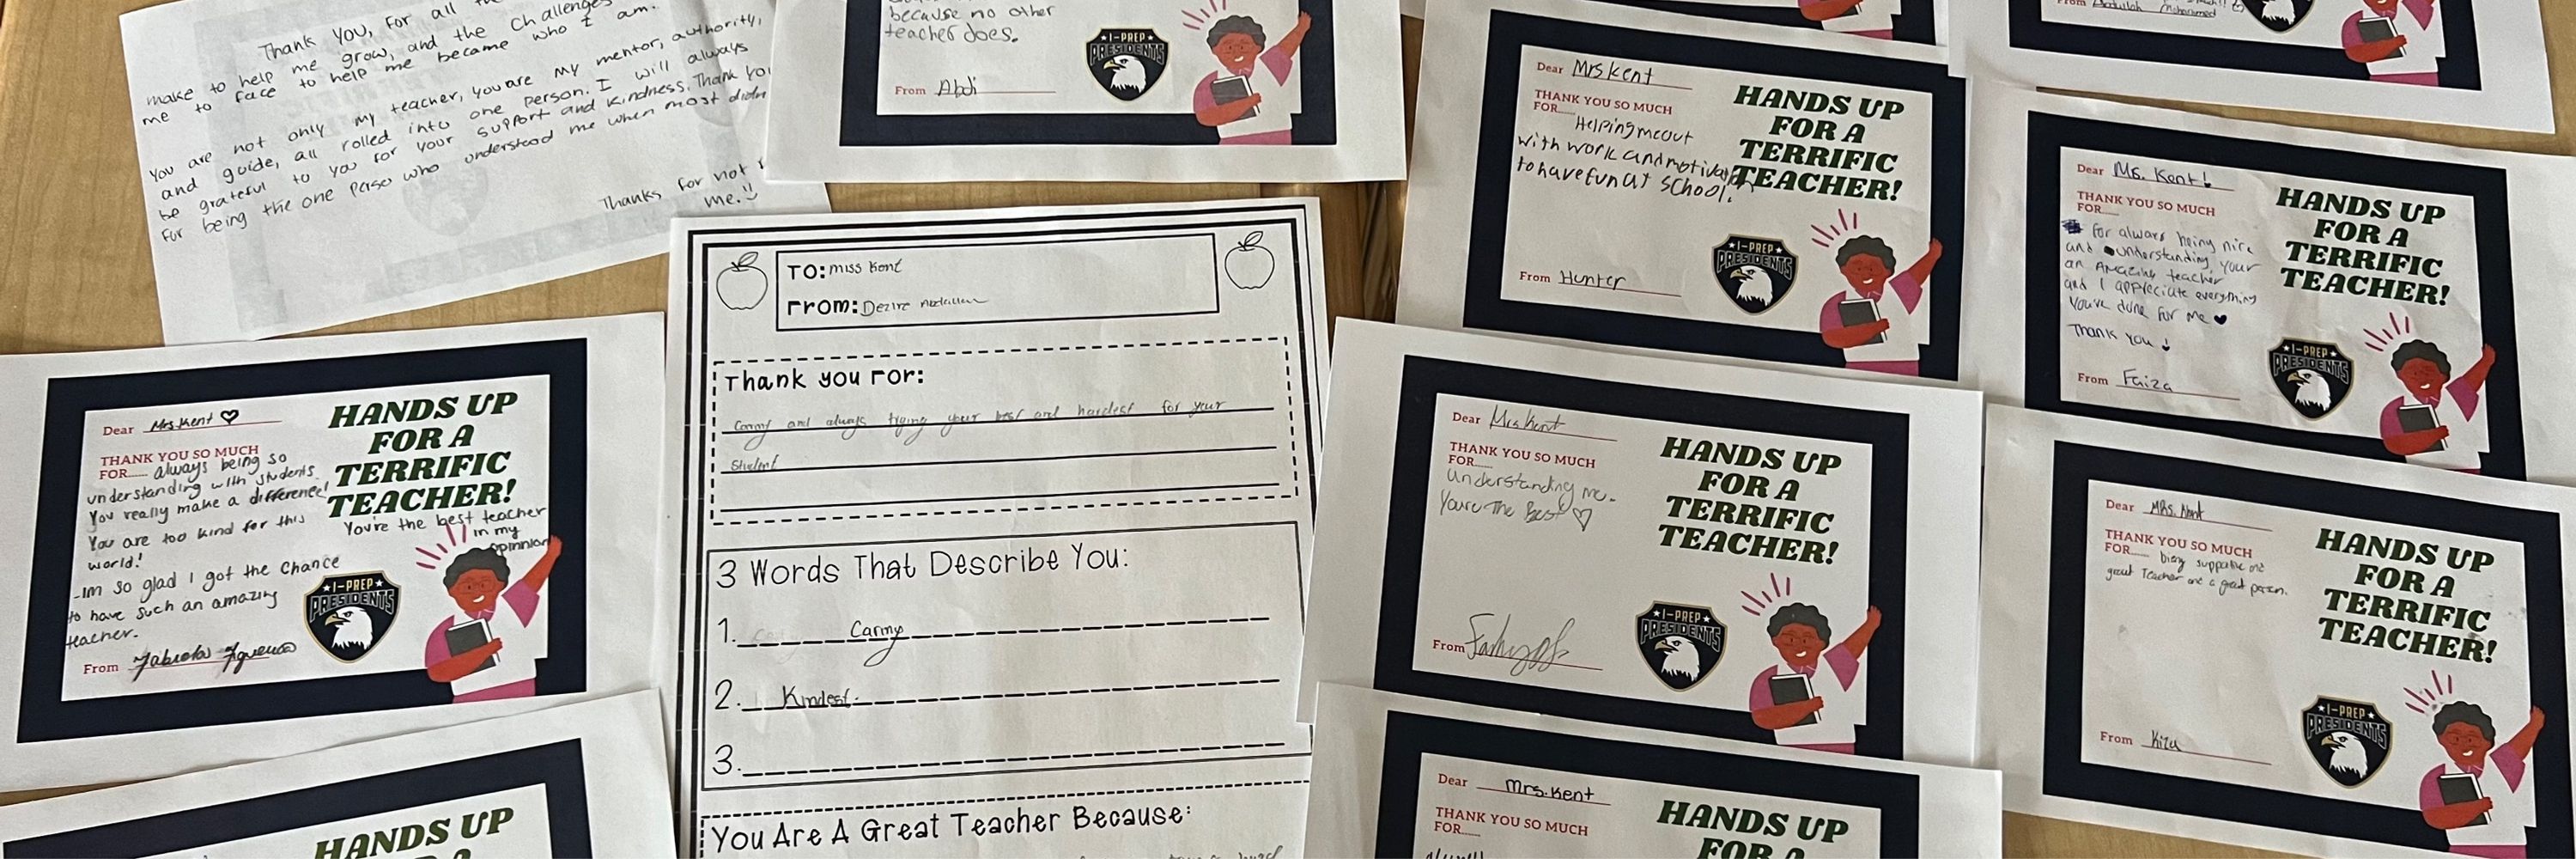 Thank you, for all
make to help me grow, and the challenges
me to face to help me became who I am.
You are not only my teacher, you are my mentor, authority,
and guide, all rolled into one person. I will always
be grateful to you for your support and kindness. Thank
for being the one person who understood me when most didn
Thanks for not
me.
because no other
teacher does.
From Abdi
I-PREP
PRESIDENTS
Dear Mrs Kent
THANK YOU SO MUCH
FOR......
Helping me out
with work and motivation
to have fun at school!
HANDS UP
FOR A
TERRIFIC
TEACHER!
From Hunter
I-PREP
PRESIDENTS
From Abdullah Mohammed
Dear Ms. Kent!
THANK YOU SO MUCH
FOR......
for always being nice
and understanding, your
an Amazing teacher
and I appreciate everything
You've done for me
Thank you!
HANDS UP
FOR A
TERRIFIC
TEACHER!
From Faiza
I-PREP
PRESIDENTS
Dear Mrs. Kent
THANK YOU SO MUCH
FOR...... always being so
understanding with students.
You really make a difference!
You are too kind for this
world!
-Im so glad I got the chance
to have such an amazing
teacher.
You're the best teacher
in my
opinnion
HANDS UP
FOR A
TERRIFIC
TEACHER!
From
I-PREP
PRESIDENTS
HANDS UP
TO: miss Kent
From: Dezire
Thank you For:
Caring and always trying your best and hardest for your
Student
3 Words That Describe You:
1. Caring
2. Kindest.
3.
You Are A Great Teacher Because:
Dear Mrs Kent
THANK YOU SO MUCH
FOR......
Understanding me.
You're The Best
HANDS UP
FOR A
TERRIFIC
TEACHER!
From
I-PREP
PRESIDENTS
Dear Mrs. Kent
THANK YOU SO MUCH
FOR......
HANDS UP
FOR A
Dear MRs. Kent
THANK YOU SO MUCH
FOR...... being supportive and
great Teacher and a great person.
HANDS UP
FOR A
TERRIFIC
TEACHER!
From
I-PREP
PRESIDENTS